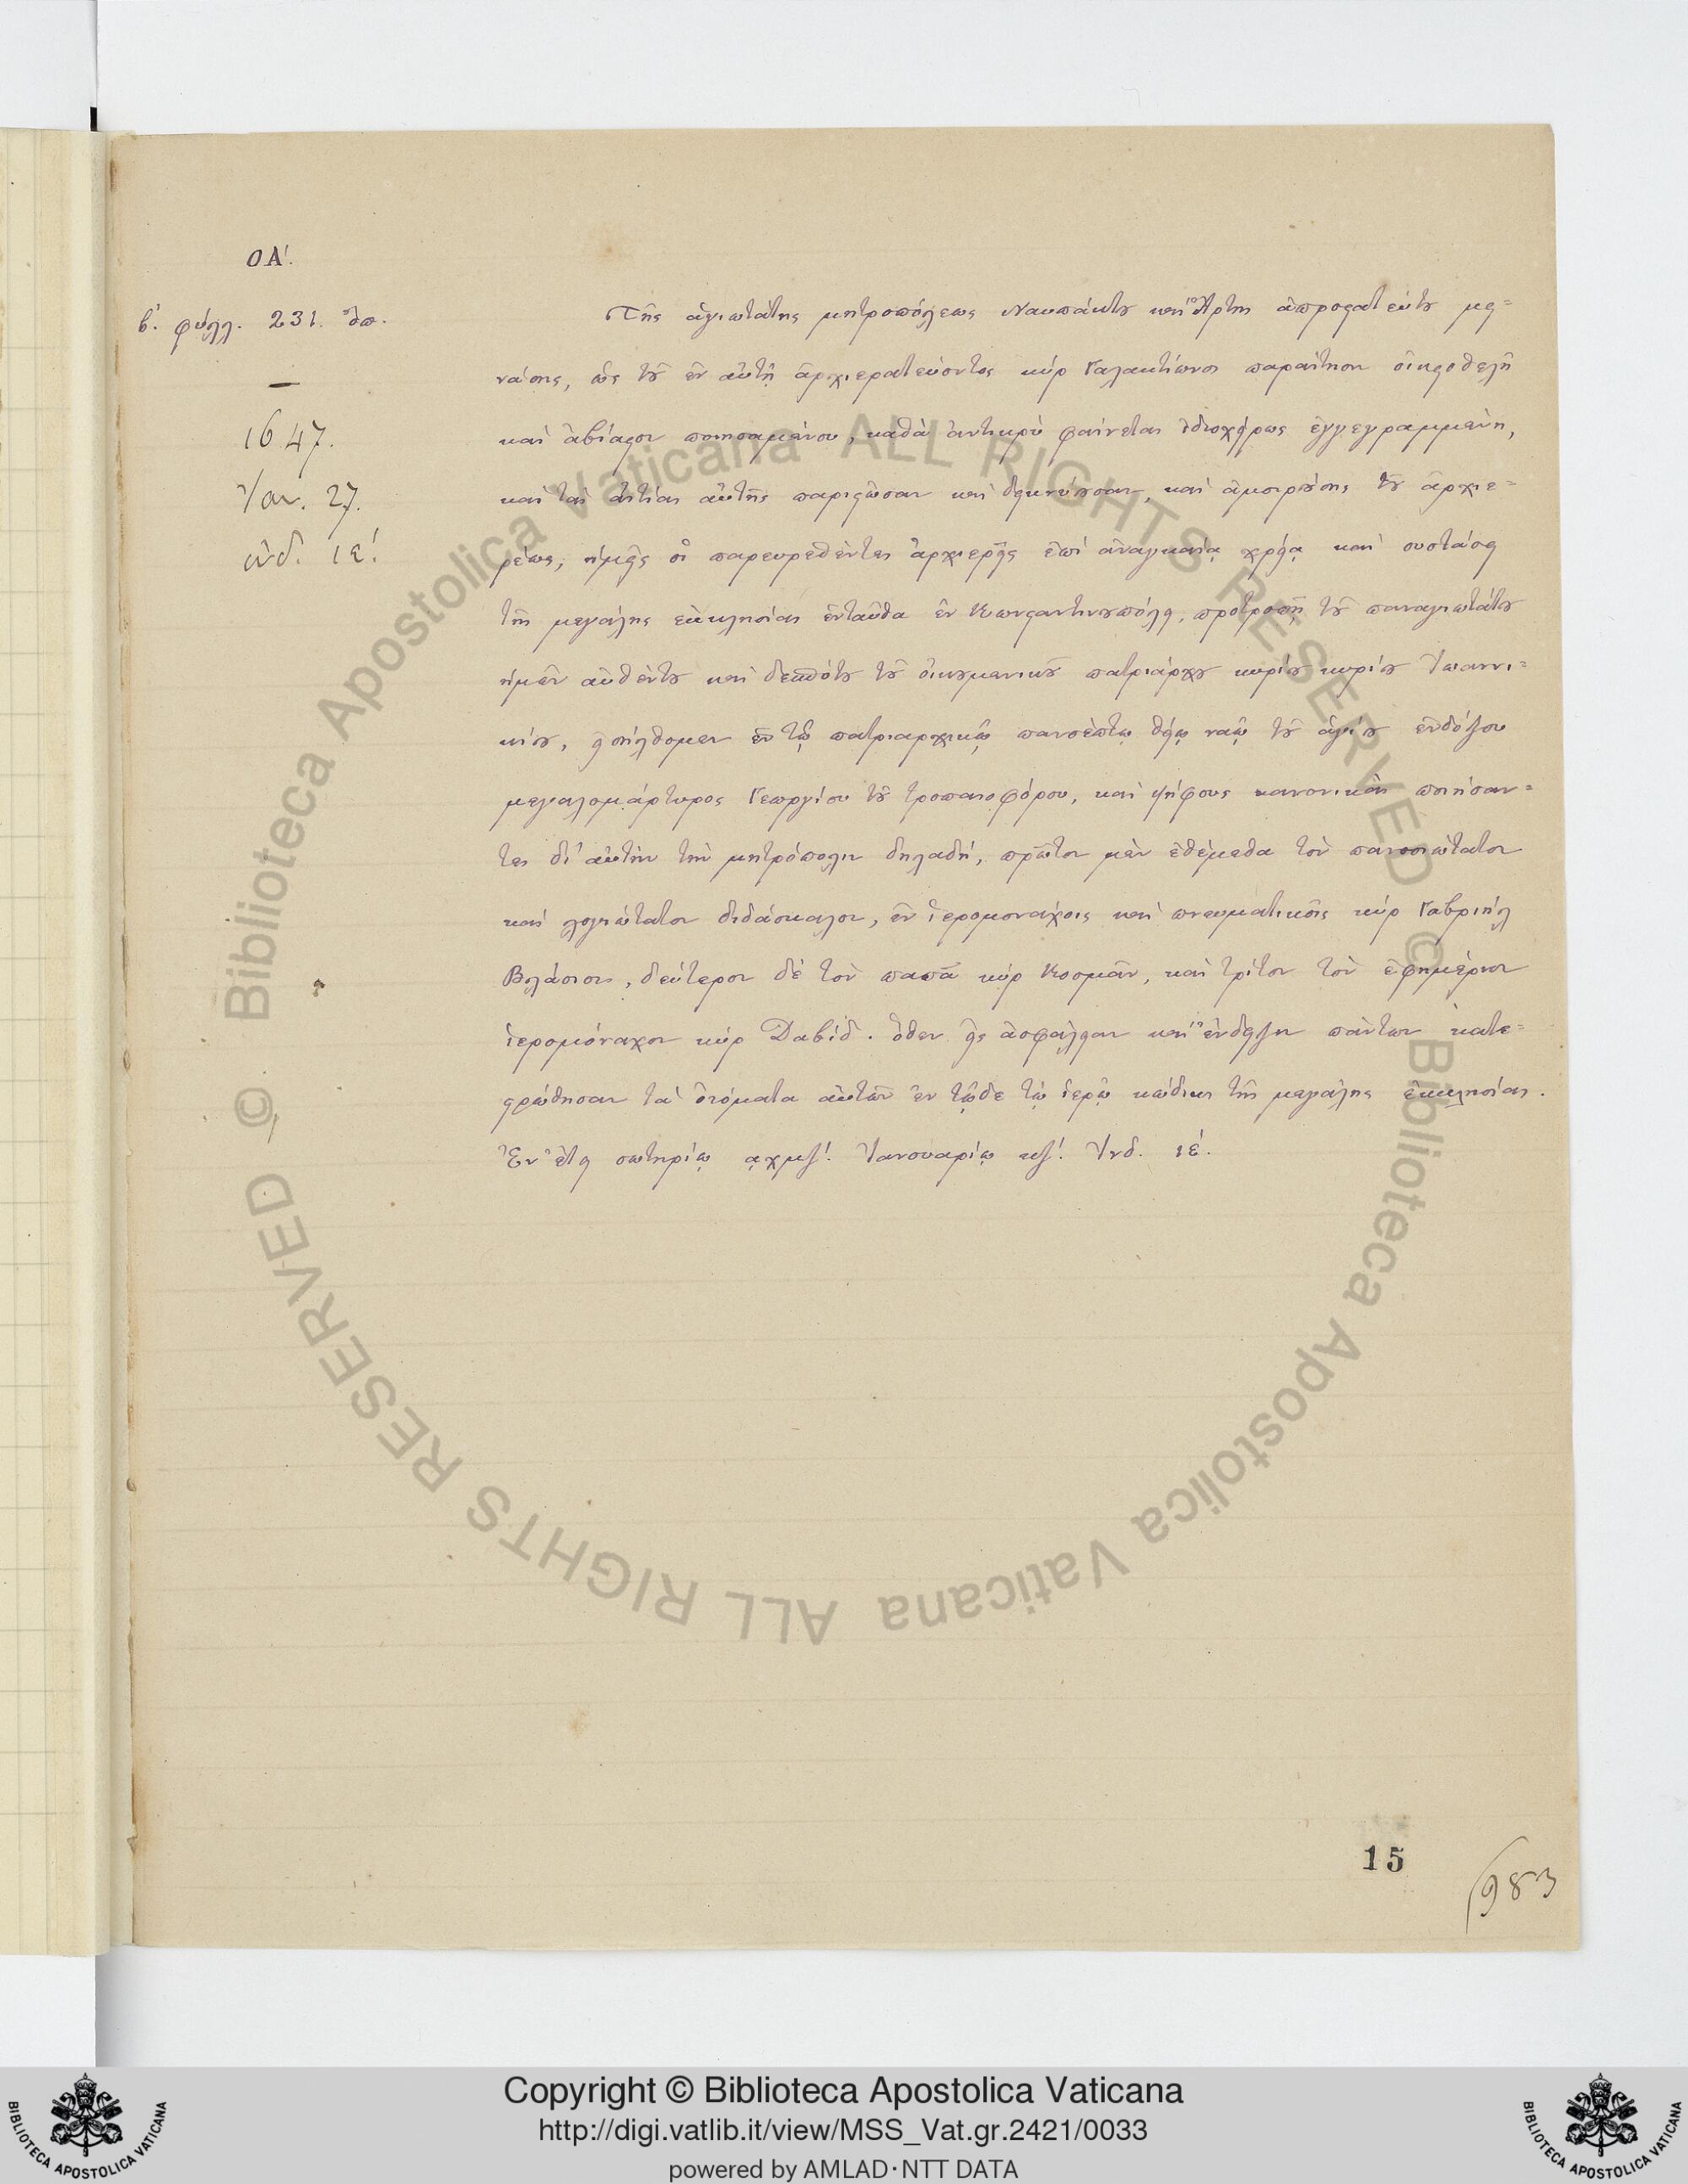 ΟΑ΄.
β΄. φύλλ. 231. ὄπ.
1647.
Ἰαν. 27.
ἰνδ. ιε΄.
Τῆς ἁγιωτάτης μητροπόλεως Ναυπάκτου καὶ Ἄρτης ἀπροστατεύτου μει-
νάσης, ὡς τοῦ ἐν αὐτῇ ἀρχιερατεύοντος κὺρ Γαλακτίωνος παραίτησιν οἰκειοθελῆ
καὶ ἀβίαστον ποιησαμένου, καθὰ ἀντικρὺ φαίνεται ἰδιοχείρως ἐγγεγραμμένη,
καὶ τὰς αἰτίας αὐτῆς παριστῶσαν καὶ δεικνύουσαν, καὶ ἀμοιρούσης τοῦ ἀρχιε-
ρέως, ἡμεῖς οἱ παρευρεθέντες ἀρχιερεῖς ἐπὶ ἀναγκαίᾳ χρείᾳ καὶ συστάσει
τῆς μεγάλης ἐκκλησίας ἐνταῦθα ἐν Κωνσταντινουπόλει, προτροπῇ τοῦ παναγιωτάτου
ἡμῶν αὐθέντου καὶ δεσπότου τοῦ οἰκουμενικοῦ πατριάρχου κυρίου κυρίου Ἰωαννι-
κίου, εἰσήλθομεν ἐν τῷ πατριαρχικῷ πανσέπτῳ θείῳ ναῷ τοῦ ἁγίου ἐνδόξου
μεγαλομάρτυρος Γεωργίου τοῦ τροπαιοφόρου, καὶ ψήφους κανονικὰς ποιήσαν-
τες δι' αὐτὴν τὴν μητρόπολιν δηλαδή, πρῶτον μὲν ἐθέμεθα τὸν πανοσιώτατον
καὶ λογιώτατον διδάσκαλον, ἐν ἱερομονάχοις καὶ πνευματικοῖς κὺρ Γαβριὴλ
Βλάσιον, δεύτερον δὲ τὸν παπᾶ κὺρ Κοσμᾶν, καὶ τρίτον τὸν ἐφημέριον
ἱερομόναχον κὺρ Δαβίδ. ὅθεν εἰς ἀσφάλειαν καὶ ἔνδειξιν πάντων κατε-
στρώθησαν τὰ ὀνόματα αὐτῶν ἐν τῷδε τῷ ἱερῷ κώδικι τῆς μεγάλης ἐκκλησίας.
Ἐν ἔτει σωτηρίῳ ͵αχμζ΄. Ἰανουαρίῳ κζ΄. Ἰνδ. ιε΄.
15
983
© Biblioteca Apostolica Vaticana ALL RIGHTS RESERVED © Biblioteca Apostolica Vaticana ALL RIGHTS RESERVED
Copyright © Biblioteca Apostolica Vaticana
http://digi.vatlib.it/view/MSS_Vat.gr.2421/0033
powered by AMLAD·NTT DATA
BIBLIOTECA APOSTOLICA VATICANA
BIBLIOTECA APOSTOLICA VATICANA